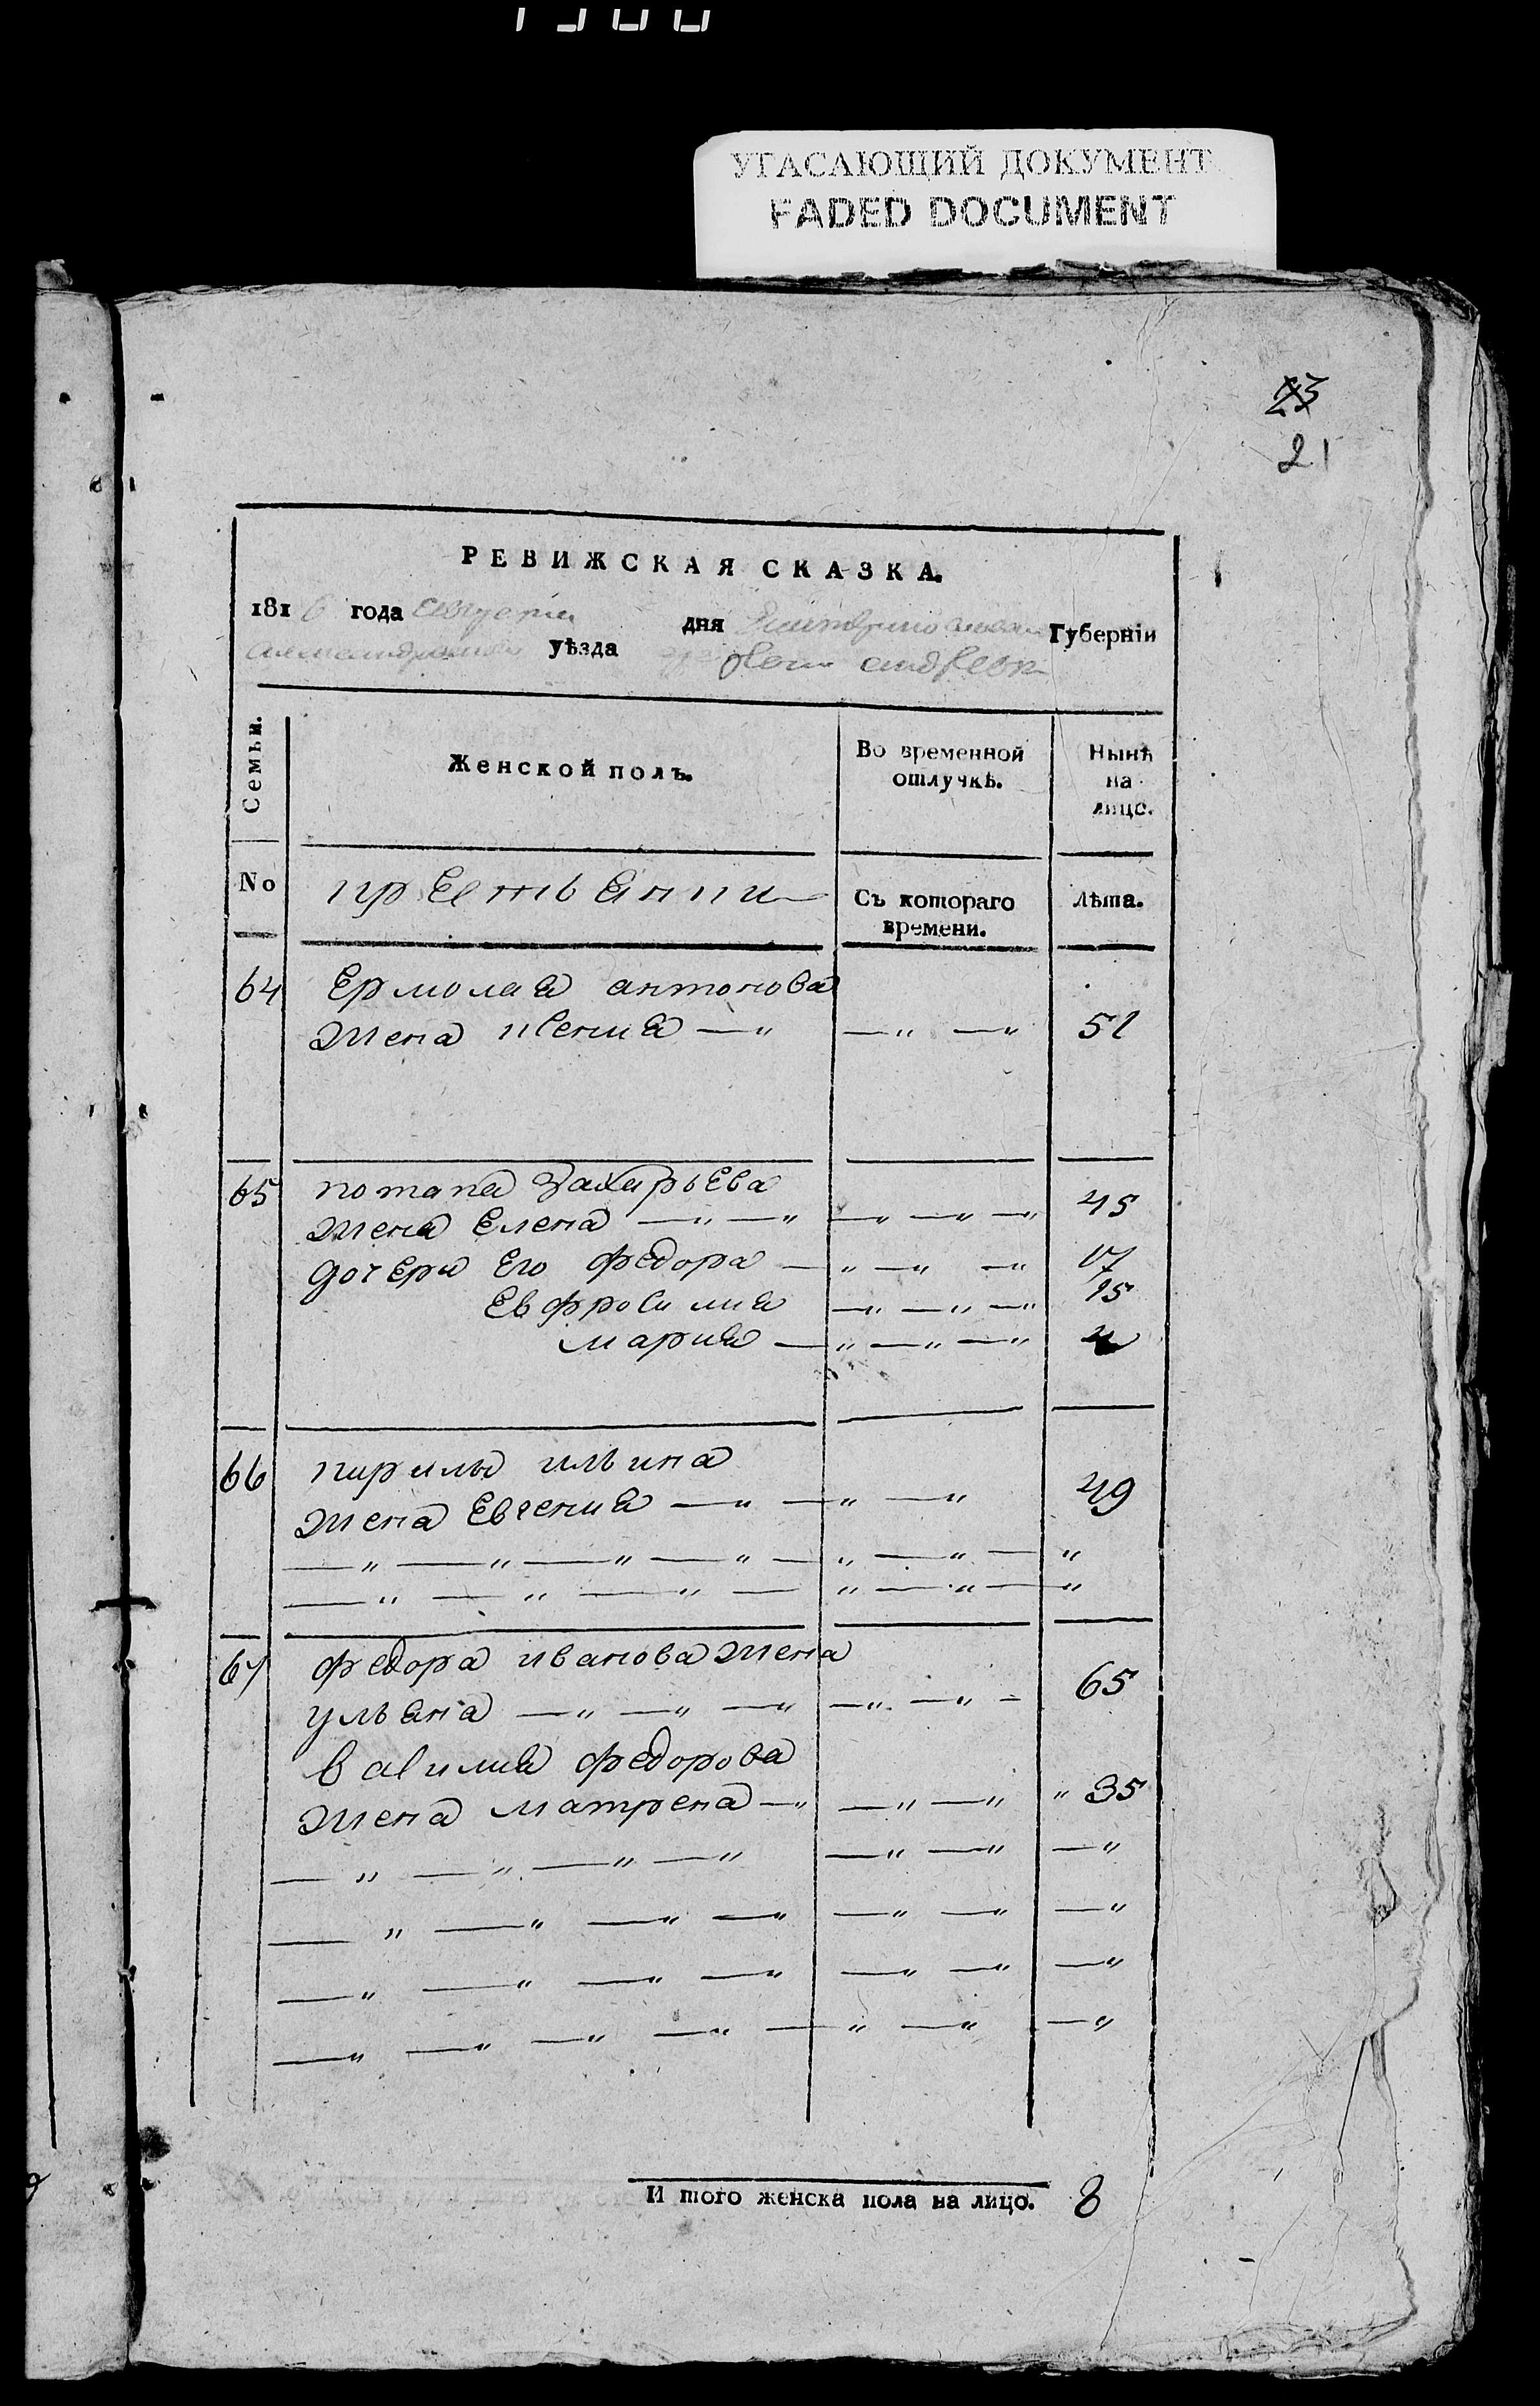 УГАСАЮЩИЙ ДОКУМЕНТ
FADED DOCUMENT
23
21
РЕВИЖСКАЯ СКАЗКА.
1816 года дня Губерніи
уѣзда
Семьи. Женской полъ. Во временной отлучкѣ. Нынѣ на лицо.
No Съ котораго времени. Лѣта.
64 Ермолая антонова
жена ксения —„ —„ —„ 51
65 потапа Захарьева
жена Елена —„ —„ —„ —„ —„ 45
дочери Его федора —„ —„ —„ 17
Евфросиния —„ —„ —„ 15
мария —„ —„ —„
66 кирилы ильина
жена Евгения —„ —„ —„ 49
—„ —„ —„ —„ —„ —„ —„
—„ —„ —„ —„ —„ —„
67 федора иванова жена
ульяна —„ —„ —„ —„ —„ — 65
василия федорова
жена матрена —„ —„ —„ „ 35
—„ —„ —„ —„ —„ —„ —„
—„ —„ —„ —„ —„ —„ —„
—„ —„ —„ —„ —„ —„ —„
—„ —„ —„ —„ —„ —„ —„
И того женска пола на лицо. 8